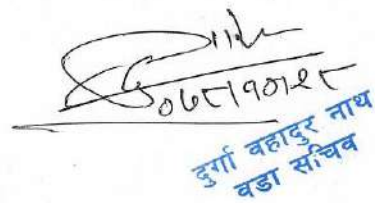 ०७८।१०।२८
दुर्गा बहादुर नाथ
वडा सचिव